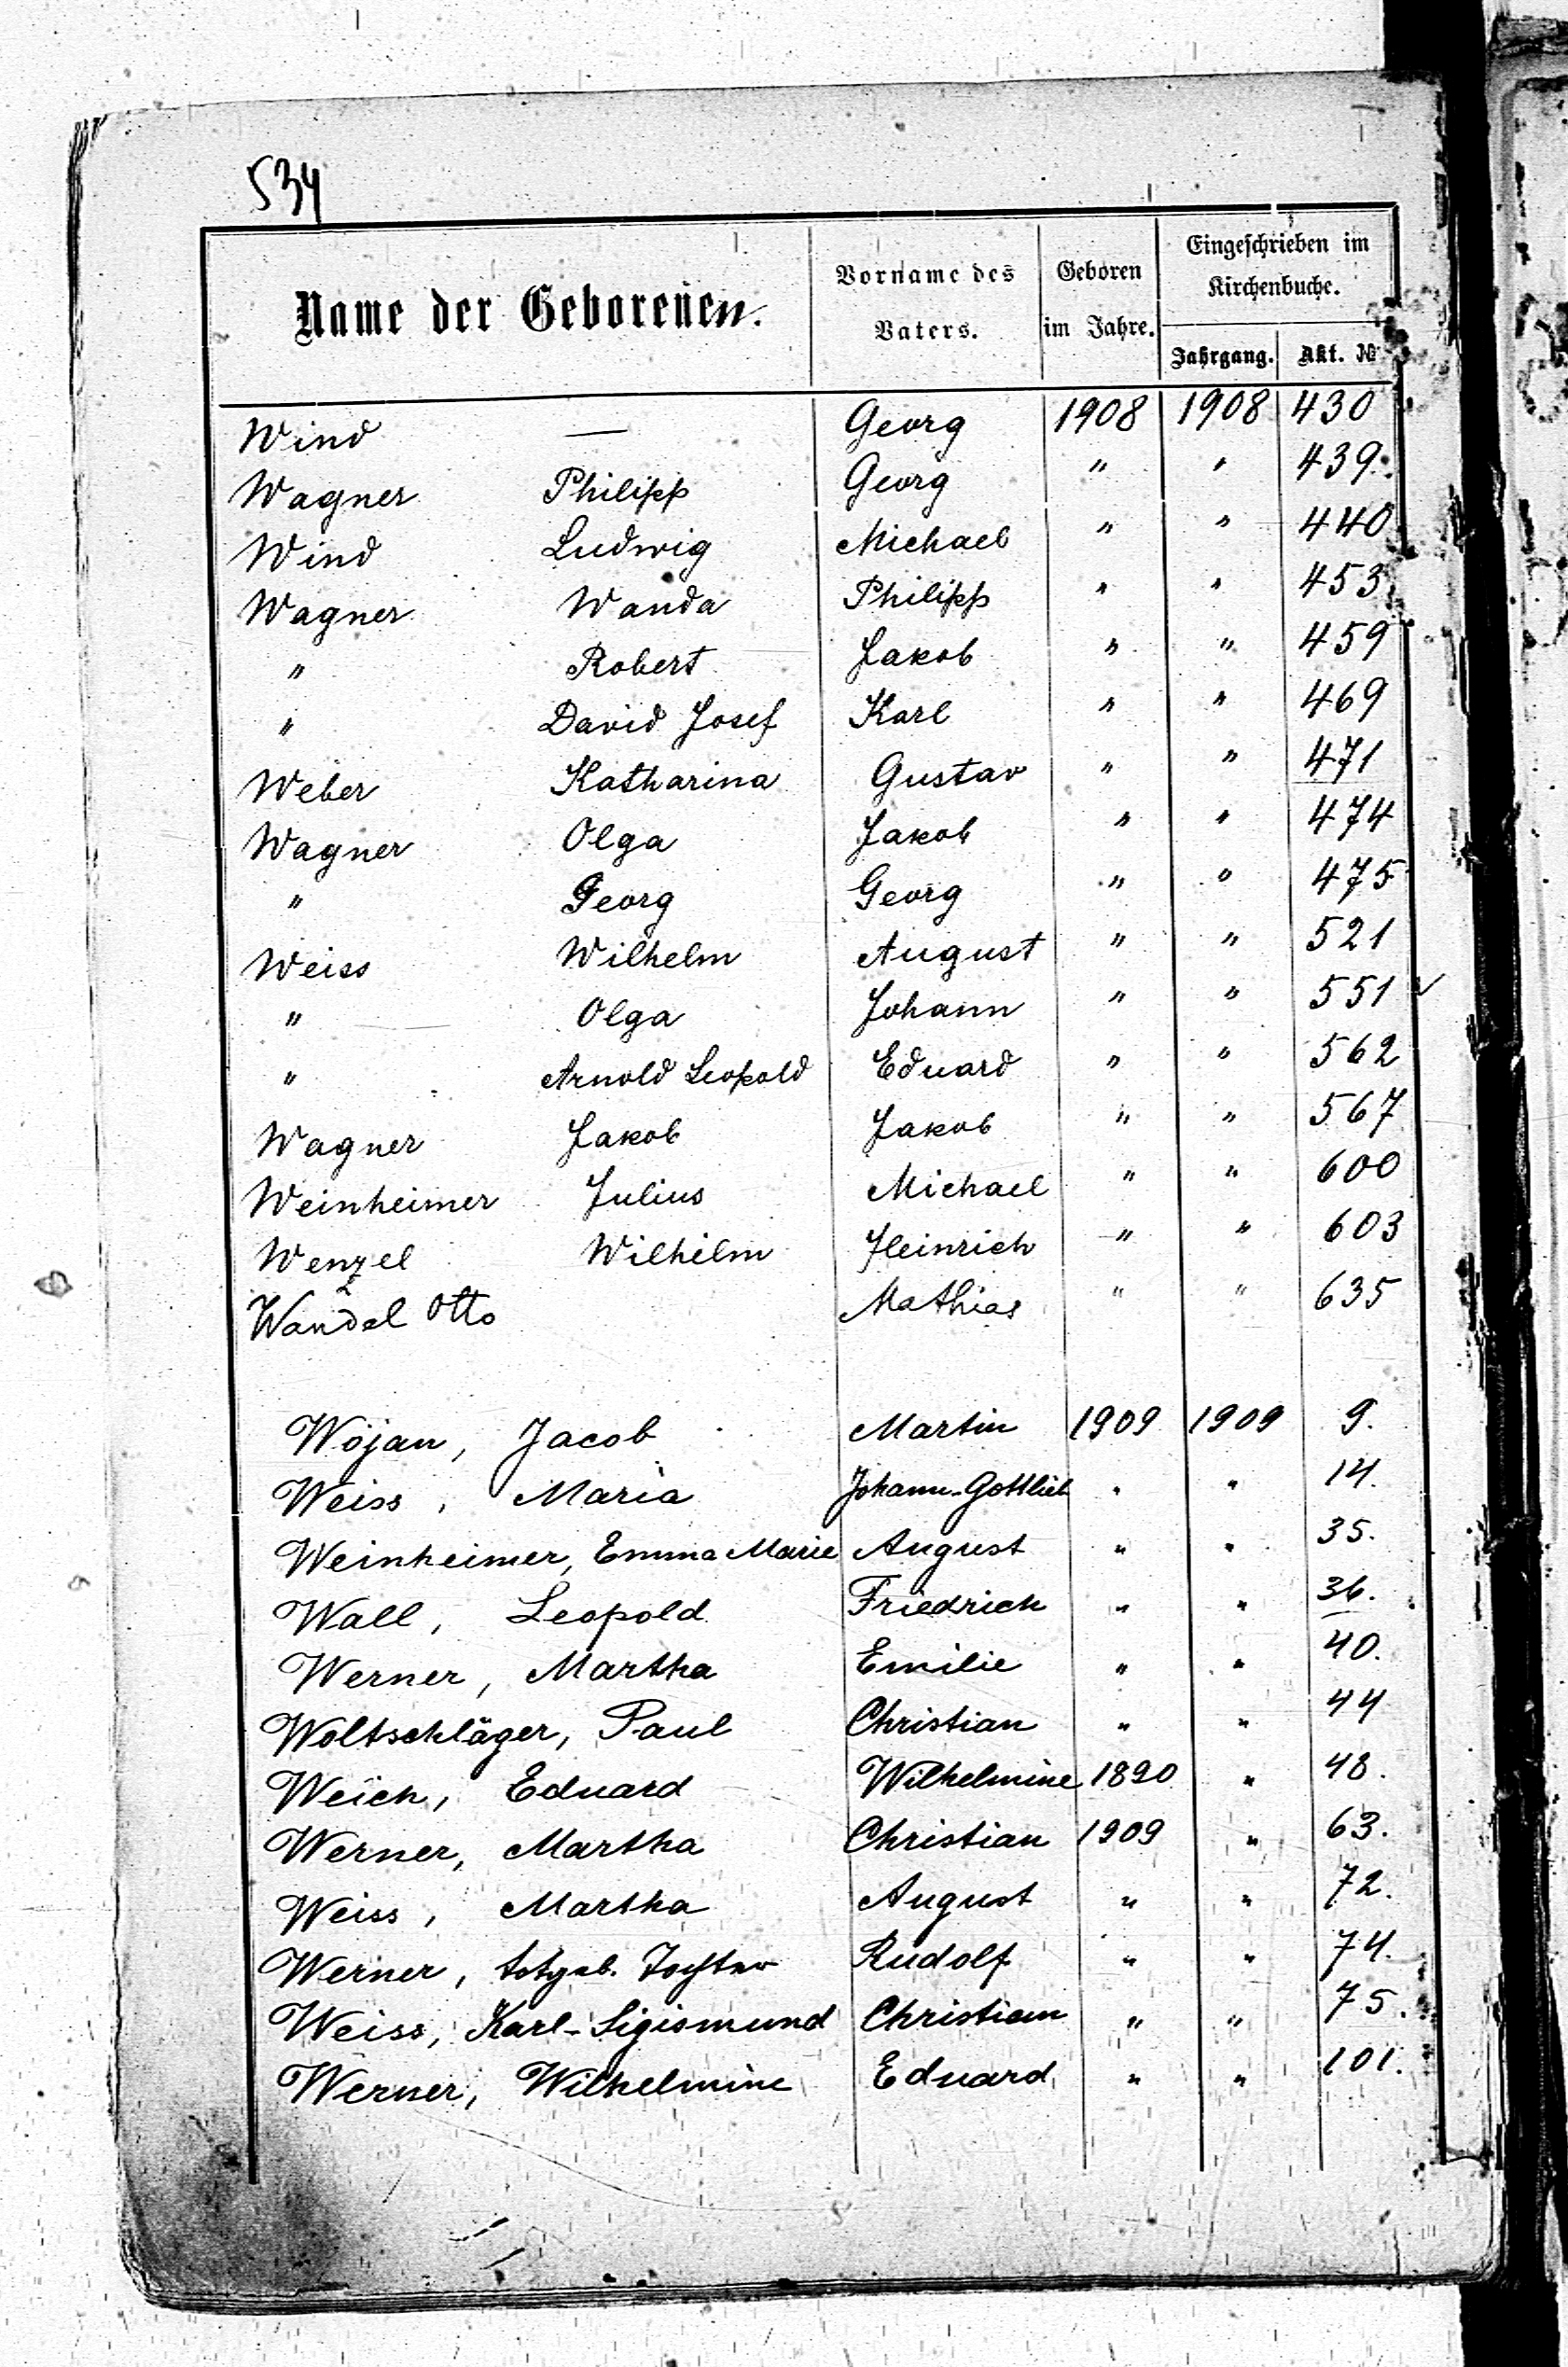 534
Name der Geborenen. Vorname des Vaters. Geboren im Jahre. Eingeschrieben im Kirchenbuche. Jahrgang. Akt. №
Wind — Georg 1908 1908 430
Wagner Philipp Georg " " 439.
Wind Ludwig Michael " " 440
Wagner Wanda Philipp " " 453
" Robert Jakob " " 459
" David Josef Karl " " 469
Weber Katharina Gustav " " 471
Wagner Olga Jakob " " 474
" Georg Georg " " 475
Weiss Wilhelm August " " 521
" Olga Johann " " 551 ✓
" Arnold Leopold Eduard " " 562
Wagner Jakob Jakob " " 567
Weinheimer Julius Michael " " 600
Wenzel Wilhelm Heinrich " " 603
Wandel Otto Mathias " " 635
Wojan, Jacob Martin 1909 1909 9.
Weiss, Maria Johann-Gottlieb " " 14.
Weinheimer, Emma Marie August " " 35.
Wall, Leopold Friedrich " " 36.
Werner, Martha Emilie " " 40.
Woltschläger, Paul Christian " " 44
Weich, Eduard Wilhelmine 1890 " 48.
Werner, Martha Christian 1909 " 63.
Weiss, Martha August " " 72.
Werner, totgeb. Tochter Rudolf " " 74.
Weiss, Karl-Sigismund Christian " " 75.
Werner, Wilhelmine Eduard " " 101.